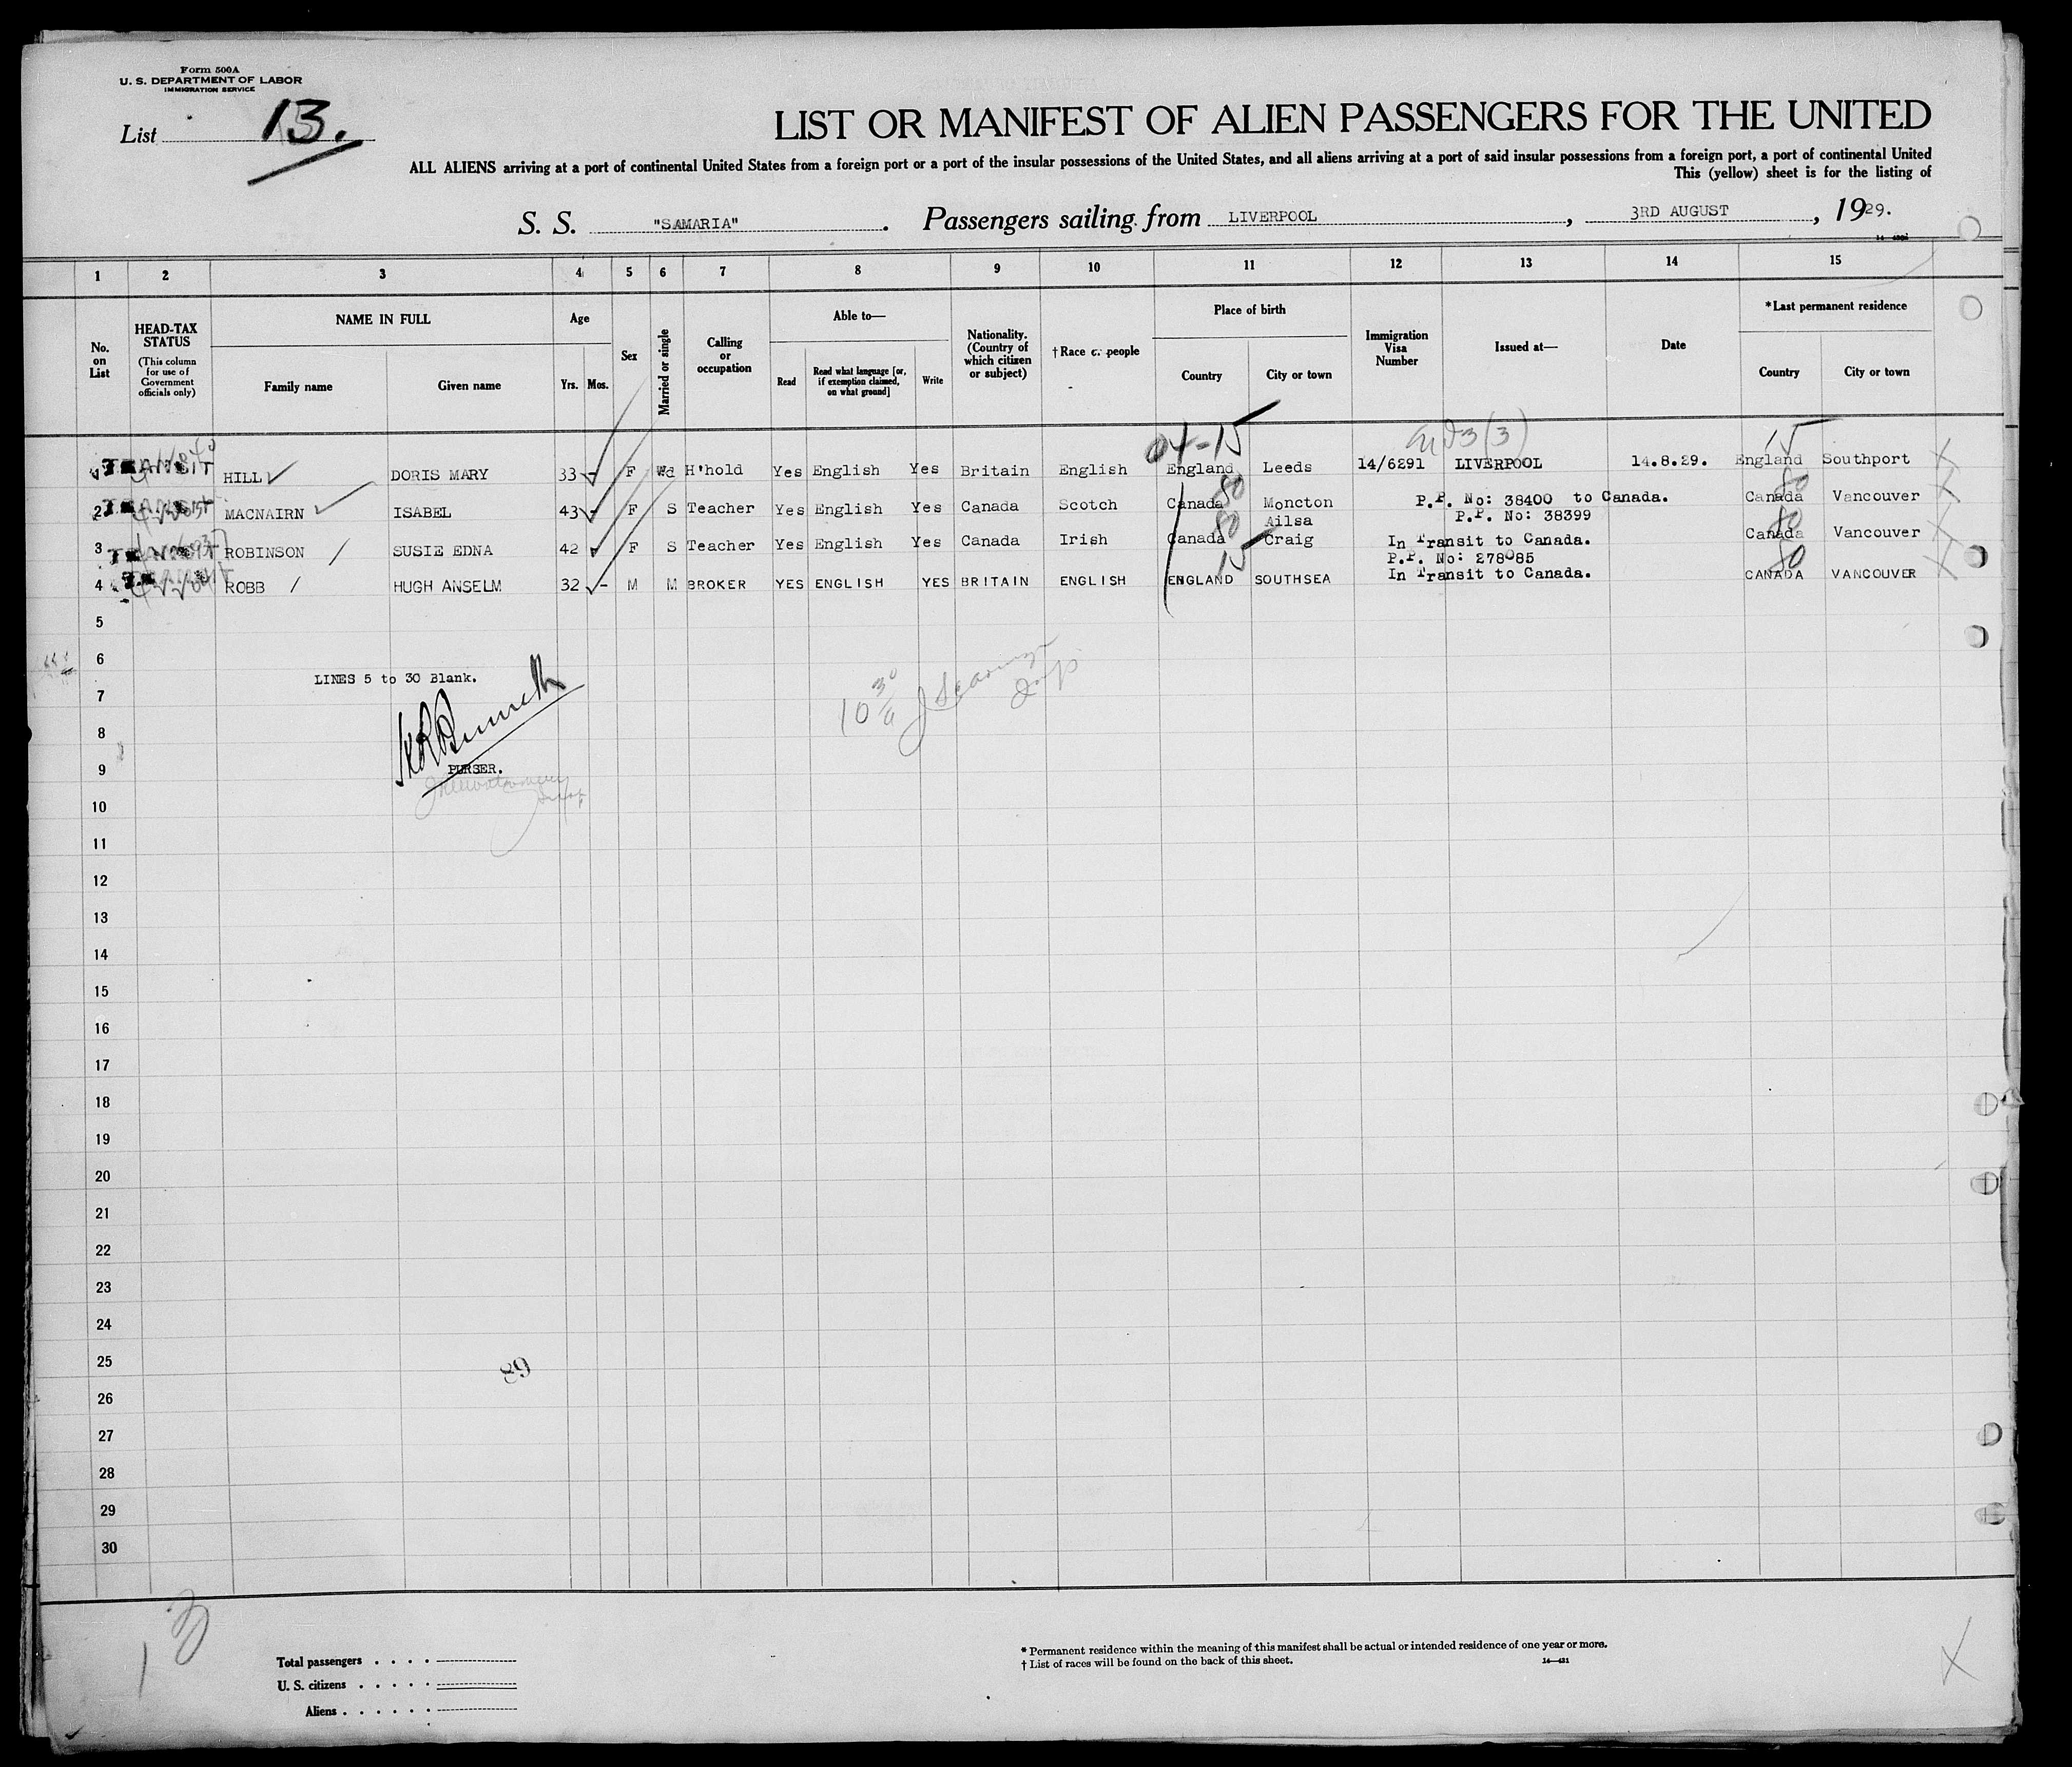 Form 500A
U. S. DEPARTMENT OF LABOR
IMMIGRATION SERVICE
List 13.
LIST OR MANIFEST OF ALIEN PASSENGERS FOR THE UNITED
ALL ALIENS arriving at a port of continental United States from a foreign port or a port of the insular possessions of the United States, and all aliens arriving at a port of said insular possessions from a foreign port, a port of continental United
This (yellow) sheet is for the listing of
S. S. "SAMARIA". Passengers sailing from LIVERPOOL, 3RD AUGUST, 1929.
1 2 3 4 5 6 7 8 9 10 11 12 13 14 15
No. on List
HEAD-TAX STATUS
(This column for use of Government officials only)
NAME IN FULL
Family name Given name
Age
Yrs. Mos.
Sex
Married or single
Calling or occupation
Able to—
Read
Read what language [or, if exemption claimed, on what ground]
Write
Nationality. (Country of which citizen or subject)
†Race or people
Place of birth
Country City or town
Immigration Visa Number
Issued at—
Date
*Last permanent residence
Country City or town
04-15 15
1 TRANSIT HILL DORIS MARY 33 - F Wd H'hold Yes English Yes Britain English England Leeds 14/6291 LIVERPOOL 14.8.29. England Southport
80 80
2 MACNAIRN ISABEL 43 - F S Teacher Yes English Yes Canada Scotch Canada Moncton P.P. No: 38400 to Canada. Canada Vancouver
80 Ailsa P.P. No: 38399 80
3 ROBINSON SUSIE EDNA 42 F S Teacher Yes English Yes Canada Irish Canada Craig In Transit to Canada. Canada Vancouver
15 P.P. No: 278085 80
4 ROBB HUGH ANSELM 32 - M M BROKER YES ENGLISH YES BRITAIN ENGLISH ENGLAND SOUTHSEA In Transit to Canada. CANADA VANCOUVER
5
6
LINES 5 to 30 Blank.
7
8
9
PURSER.
10
11
12
13
14
15
16
17
18
19
20
21
22
23
24
25
89
26
27
28
29
30
13
Total passengers
U. S. citizens
Aliens
* Permanent residence within the meaning of this manifest shall be actual or intended residence of one year or more.
† List of races will be found on the back of this sheet.
14—421